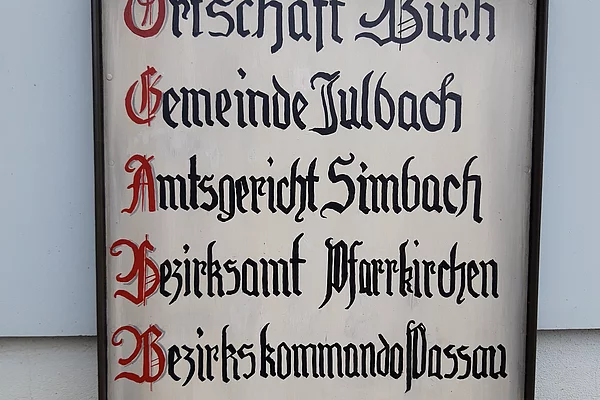 Ortschaft Buch
Gemeinde Julbach
Amtsgericht Simbach
Bezirksamt Pfarrkirchen
Bezirkskommando Passau